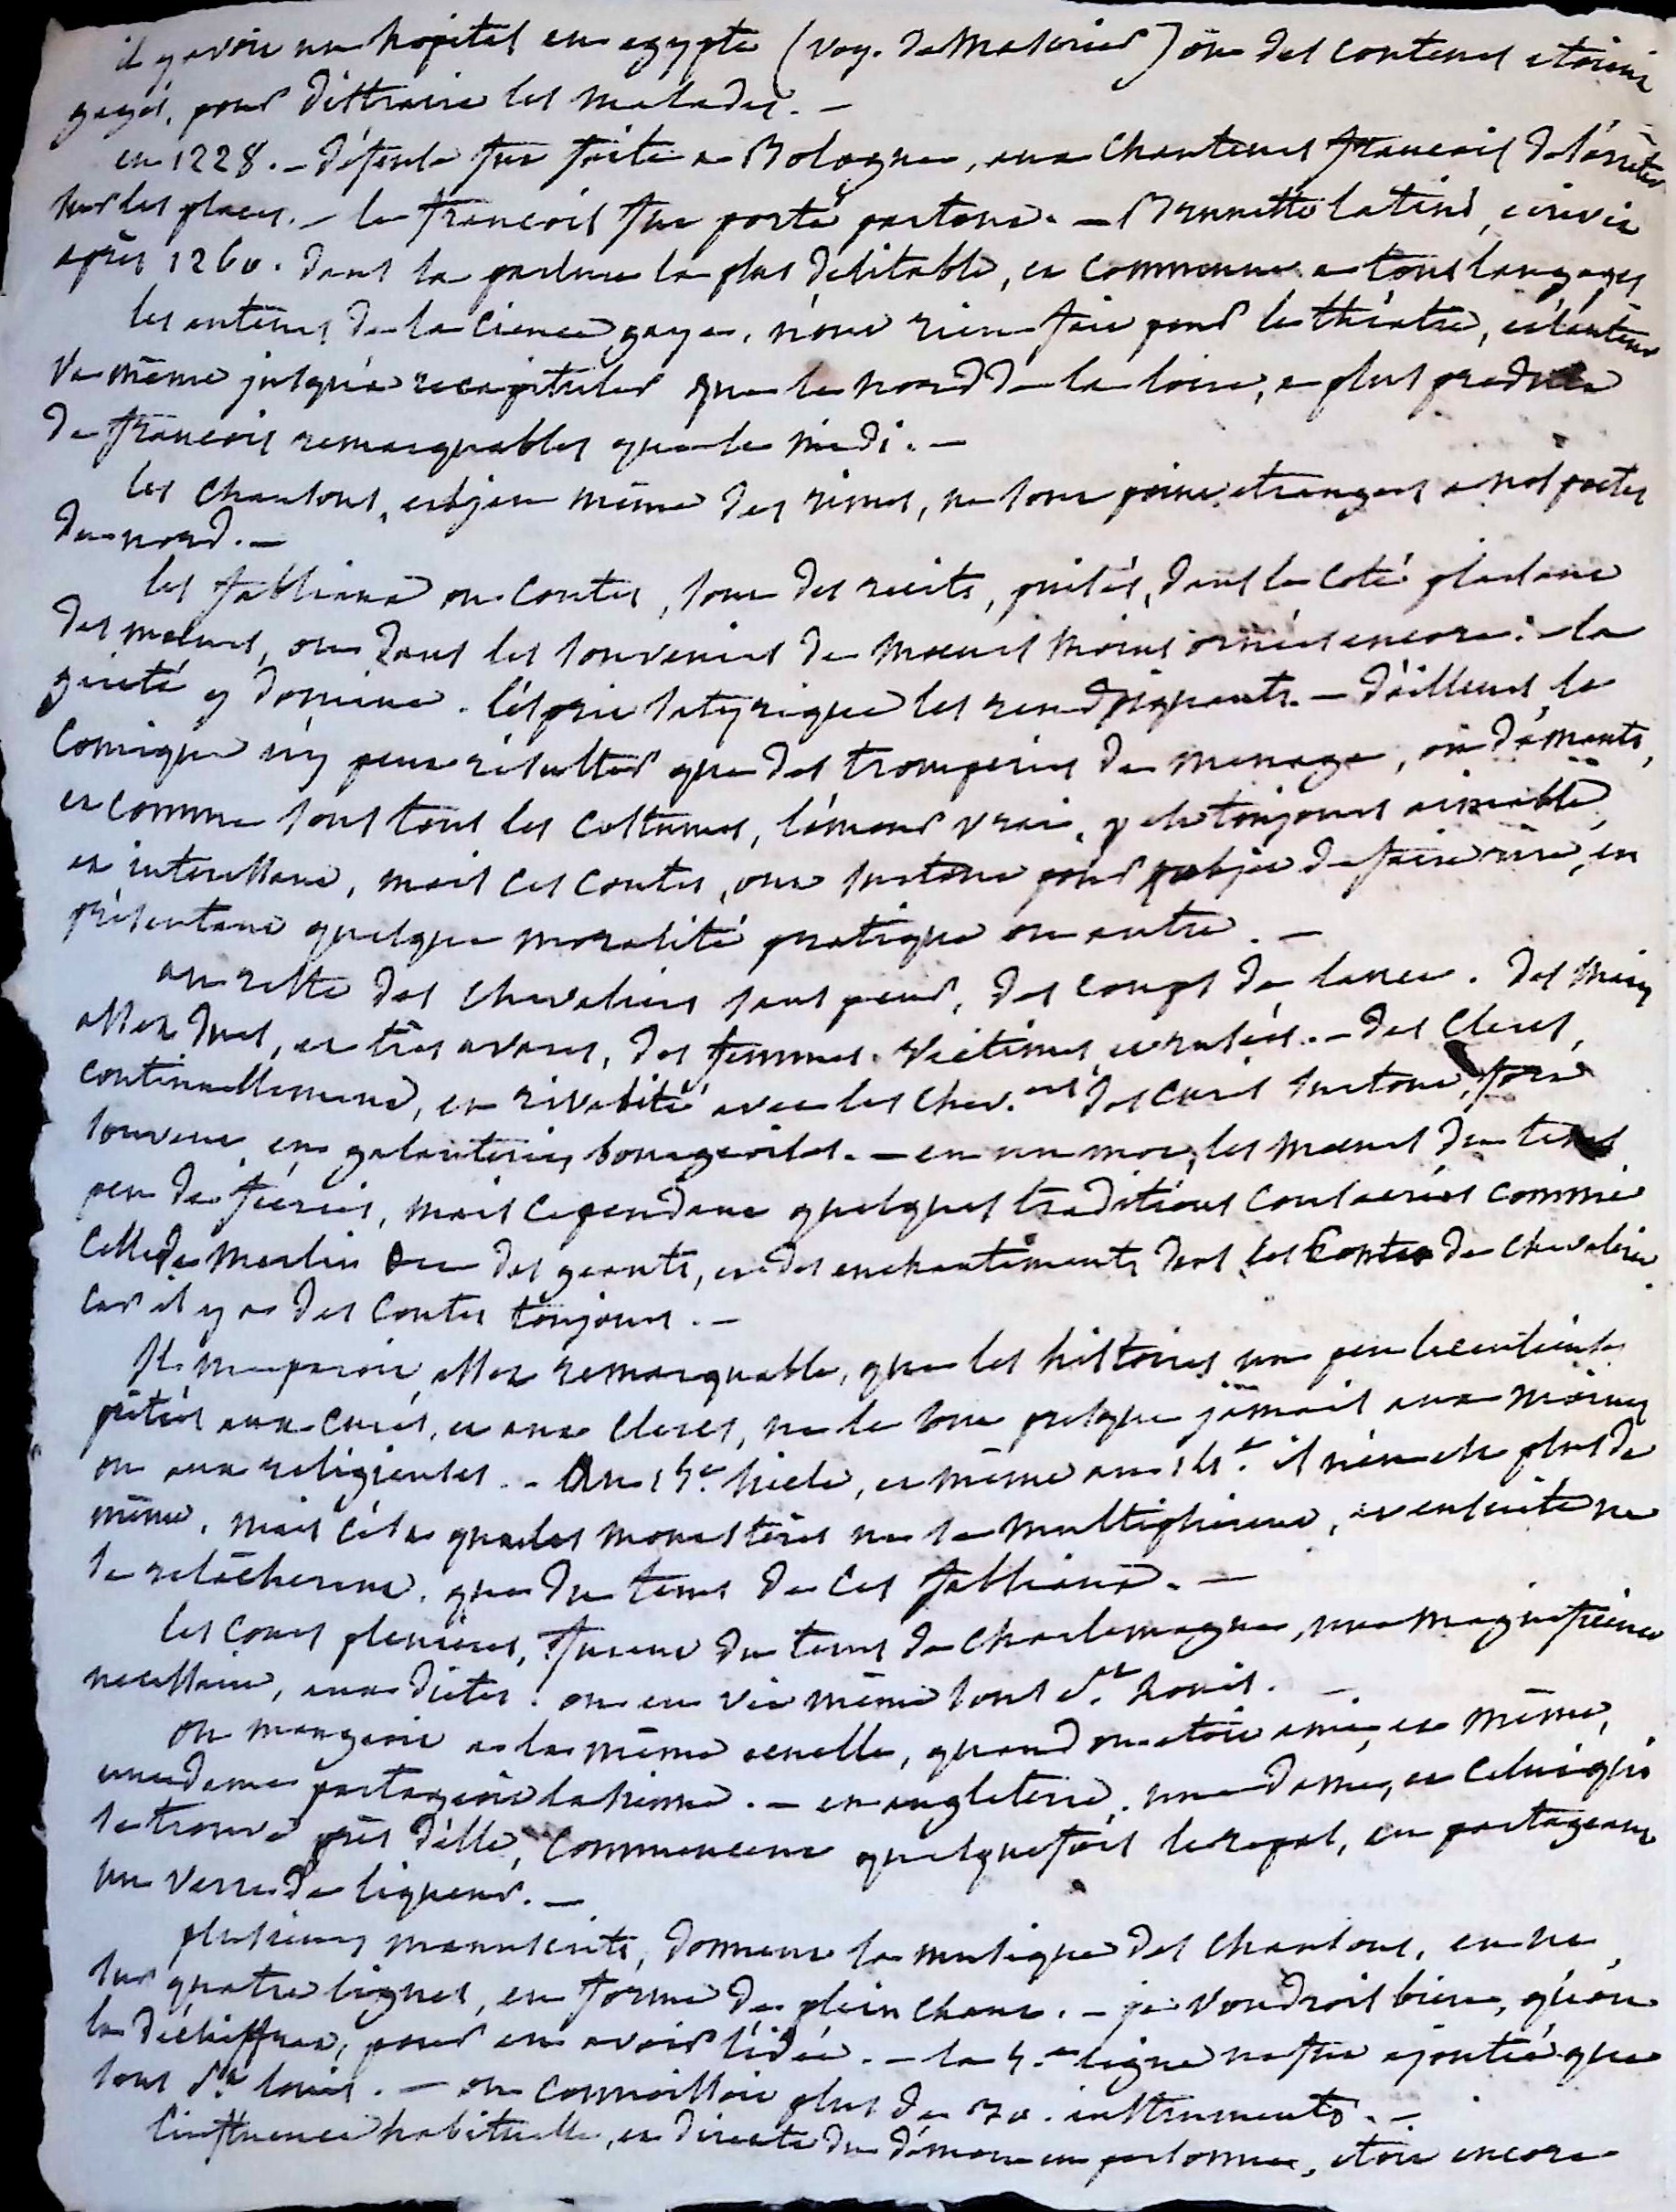 il y avoit un hopital en egypte (voy. de            ) où des conteurs etoient
gagés, pour distraire les malades. —
en 1228. — défense fut faite a Bologne, aux chanteurs francois de s'arrêter
sur les places. — le francois fut porté partout. — Brunetto latini, ecrivit
après 1260. dans la parlure la plus delitable, et commune a tous langages
les auteurs de la science gaye, n'ont rien fait pour le théâtre, et l'auteur
va même jusqu'à recapituler que le nord de la loire, a plus produit
de francois remarquables que le midi. —
les chansons, et le jeu même des rimes, ne sont point etrangers a nos poetes
du nord. —
les fabliaux ou contes, sont des recits, puisés, dans le coté plaisant
des mœurs, ou dans les souvenirs de mœurs moins ornées encore. la
gaieté y domine. l'esprit satyrique les rend piquants. — d'ailleurs, le
comique n'y peut résulter que des tromperies de menage, ou d'amants,
et comme sous tous les costumes, l'amour vrai, y est toujours aimable,
et interessant, mais ces contes, ont surtout pour objet de faire rire, en
présentant quelque moralité pratique ou autre. —
au reste des chevaliers sans peur, des coups de lance. des maris
assez durs, et très avares, des femmes victimes, et rusées. — des clercs,
continuellement, en rivalité avec les chev.ers des curés surtout, fort
souvent en galanteries bourgeoises. — en un mot, les mœurs du tems
peu de féeries, mais cependant quelques traditions consacrées comme
celle de Merlin ou des geants, et des enchantements dans les contes de chevalerie.
car il y a des contes toujours. —
Il me paroit, assez remarquable, que les histoires un peu licentieuses
prêtées aux curés, et aux clercs, ne le sont presque jamais aux moines
ou aux religieuses. — Au 15.e siecle, et même au 14.e il n'en est plus de
même, mais c'est que les monastères ne se multiplierent, et ensuite ne
se relâcherent, que du tems de ces fabliaux. —
les cours plenieres, furent du tems de Charlemagne, une magnificence
necessaire, aux dietes. on en vit même sous St. Louis. —
on mangeoit a la même ecuelle, quand on etoit ami, et même,
une dame partageoit la sienne. — en angleterre, une dame, et celui qui
se trouve près d'elle, commencent quelquefois le repas, en partageant
un verre de liqueur. —
plusieurs manuscrits, donnent la musique des chansons,
sur quatre lignes, en forme de plein chant. — je voudrois bien, qu'on
la dechiffrat, pour en avoir l'idée. — la 5.e ligne ne fut ajoutée que
sous St. louis. — on connoissoit plus de 30. instruments. —
l'influence habituelle, et directe du démon en personne, etoit encore